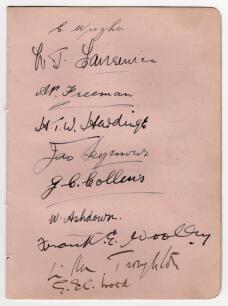 C Wright
A.P. Freeman
H.T.W. Hardinge
Jas Seymour
G.C. Collins
W. Ashdown.
Frank E. Woolley
Troughton
G.E.C. Wood